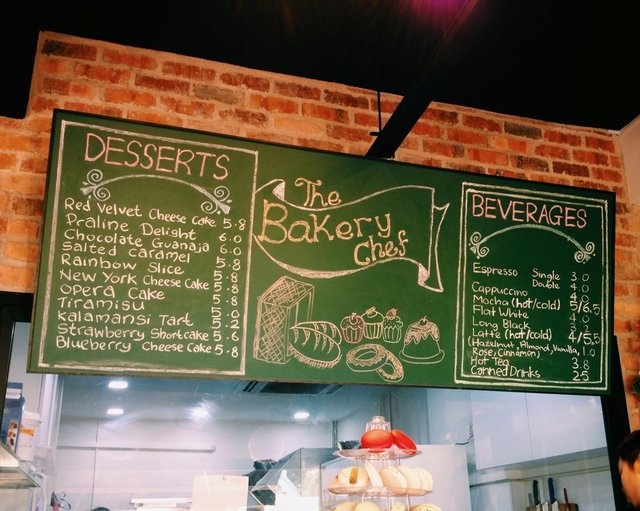 DESSERTS
Red Velvet Cheese Cake 5.8
Praline Delight 6.0
Chocolate Guanaja 6.0
Salted Caramel 5.8
Rainbow Slice 5.8
New York Cheese Cake 5.8
Opera Cake 5.8
Tiramisu 5.0
Kalamansi Tart 5.2
Strawberry Shortcake 5.6
Blueberry Cheese Cake 5.8
The
Bakery
Chef
BEVERAGES
Espresso Single 3.0
Double
Cappuccino
Mocha (hot/cold) 5/6.5
Flat White
Long Black
Latte (hot/cold) 4/5.5
(Hazelnut, Almond, Vanilla,
Rose, Cinnamon) 1.0
Hot Tea 3.8
Canned Drinks 2.5